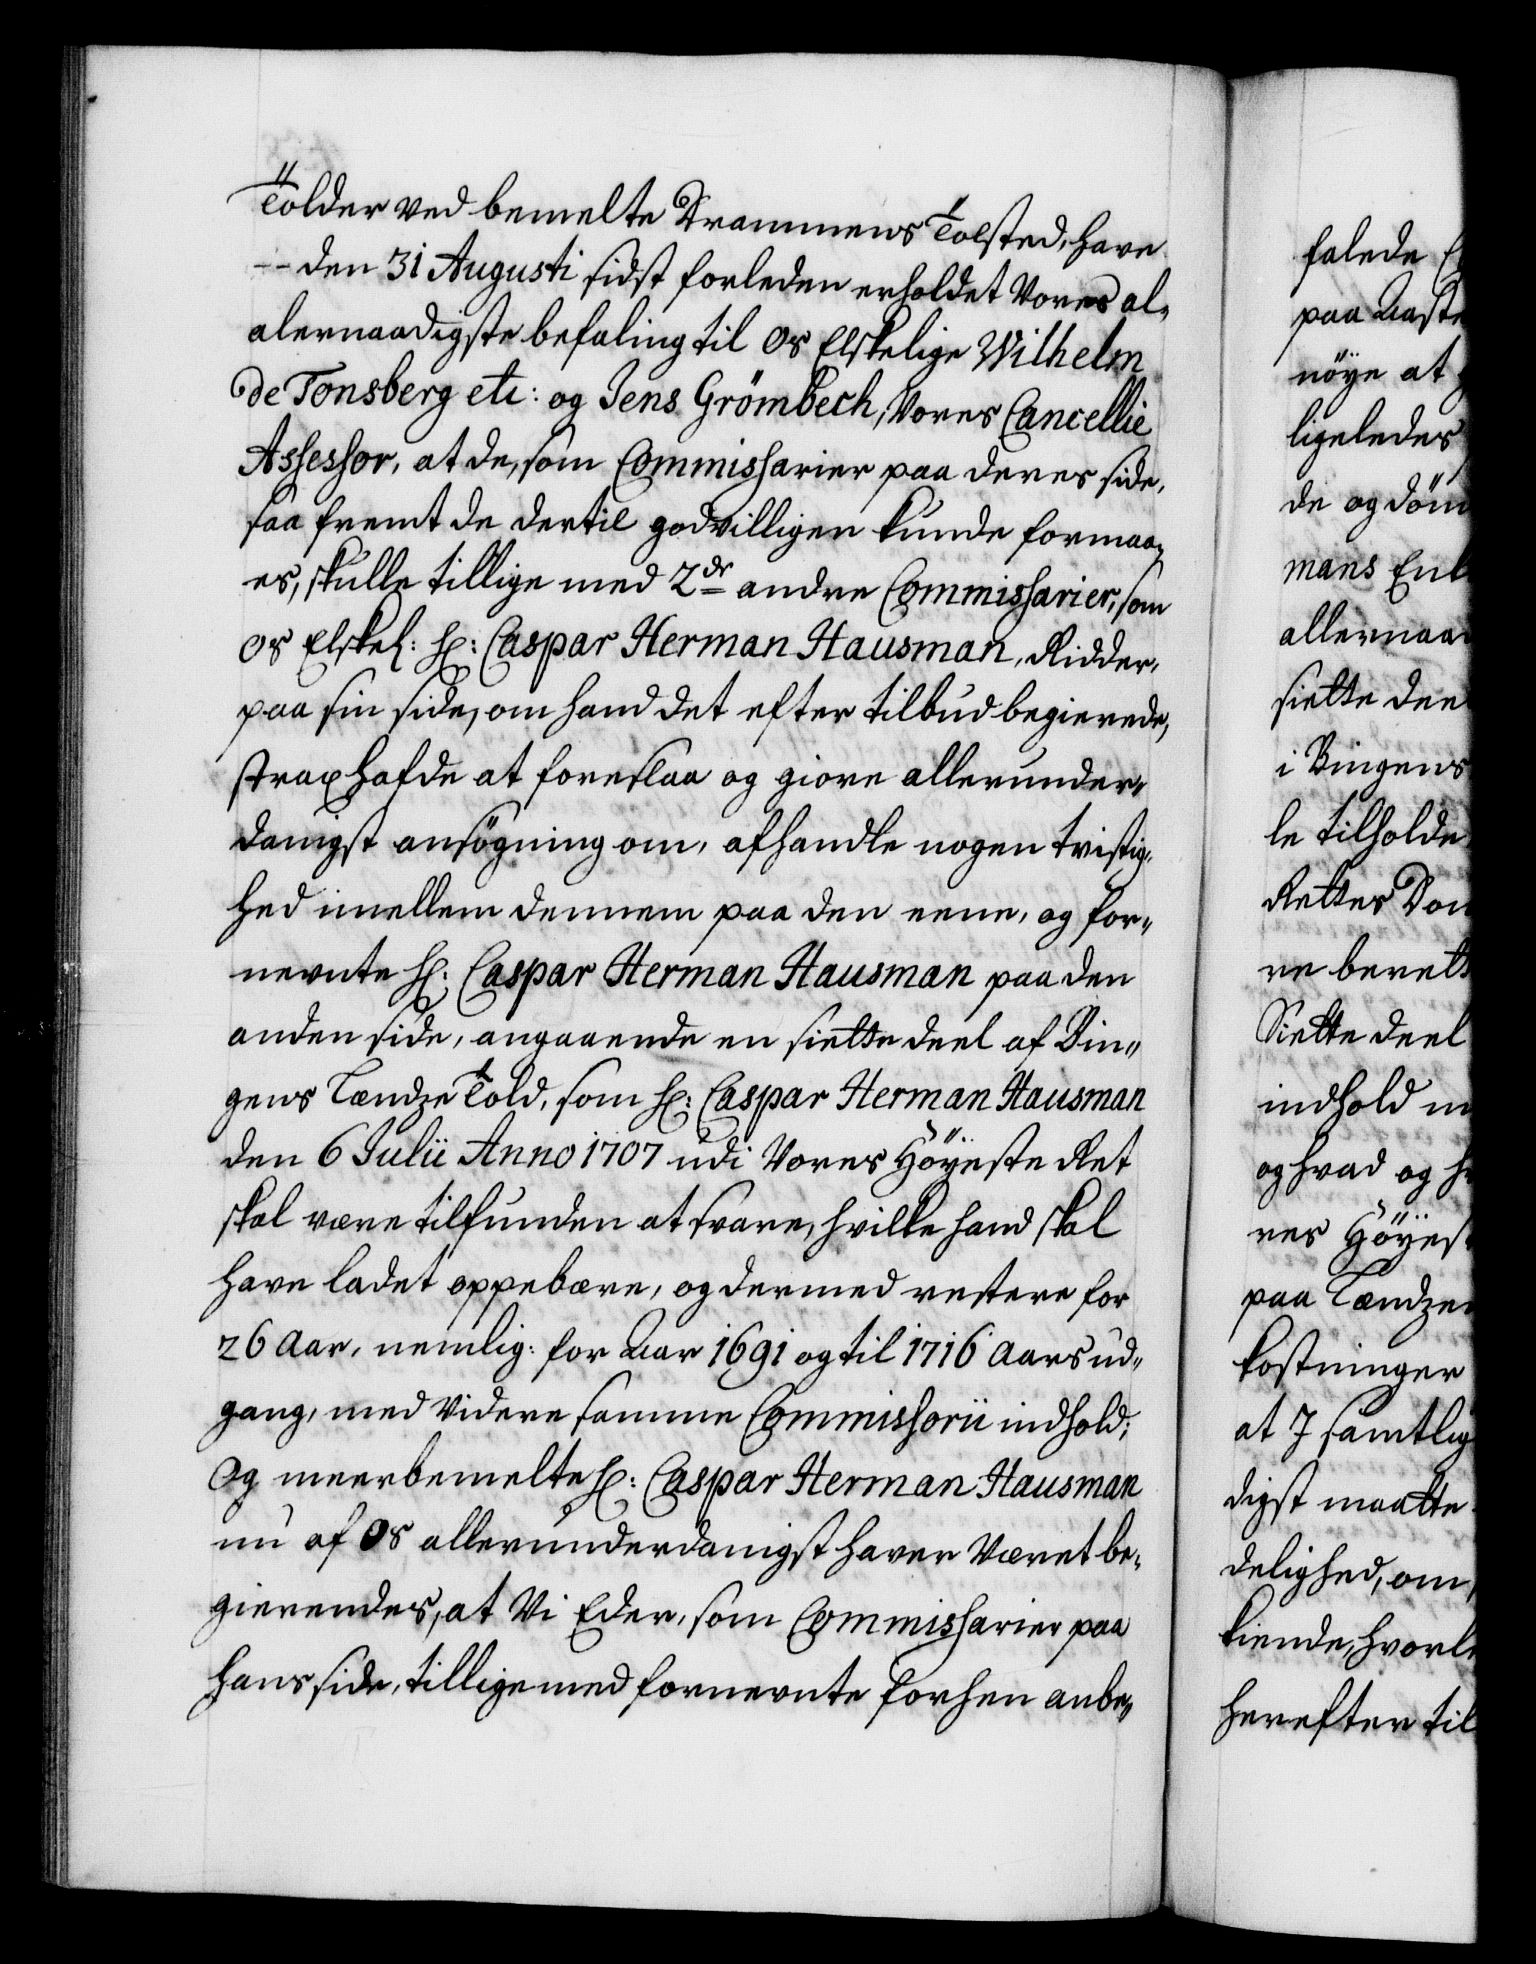 Tolder ved bemelte Drammens Tolsted, have
-- den 31 Augusti sidst forleden erholdet Vores al-
alernaadigste befaling til Os Elskelige Wilhelm
de Tonsberg etc: og Jens Grömbech, Vores Cancellie
Assessor, at de, som Commissarier paa deres side,
saa fremt de dertil godvilligen kunde formaa-
es, skulle tillige med 2de andre Commissarier, som
os Elskel: H: Caspar Herman Hausman, Ridder,
paa sin side, om hand det efter tilbud begierede,
strax hafde at foreslaa og giøre allerunder-
danigst ansögning om, afhandle nogen tvistig-
hed imellem dennem paa den eene, og for-
nevnte H: Caspar Herman Hausman paa den
anden side, angaaende en siette deel af Bin-
gens Lændze Told, som H: Caspar Herman Hausman
den 6 Julii Anno 1707 udi Vores Höÿeste Ret
skal være tilfunden at svare, hvilke hand skal
have ladet oppebære, og dermed restere for
26 Aar, nemlig: for Aar 1691 og til 1716 Aars ud-
gang, med videre samme Commissorii indhold;
Og meerbemelte H: Caspar Herman Hausman
nu af Os allerunderdanigst haver Været be-
gierendes, at Vi Eder, som Commissarier paa
hans side, tillige med fornevnte forhen anbe-
falede
paa
nöye at
ligeledes
de og döm
mans Enk
allernaa
siette dee
i Bingens
le tilholde
Rettes Dom
re berett
Siette deel
indhold
og hvad og
res Höÿes
paa Lændze
kostninger
at I samtlig
digst maatte
delighed, om
kiende, hvorle
herefter til